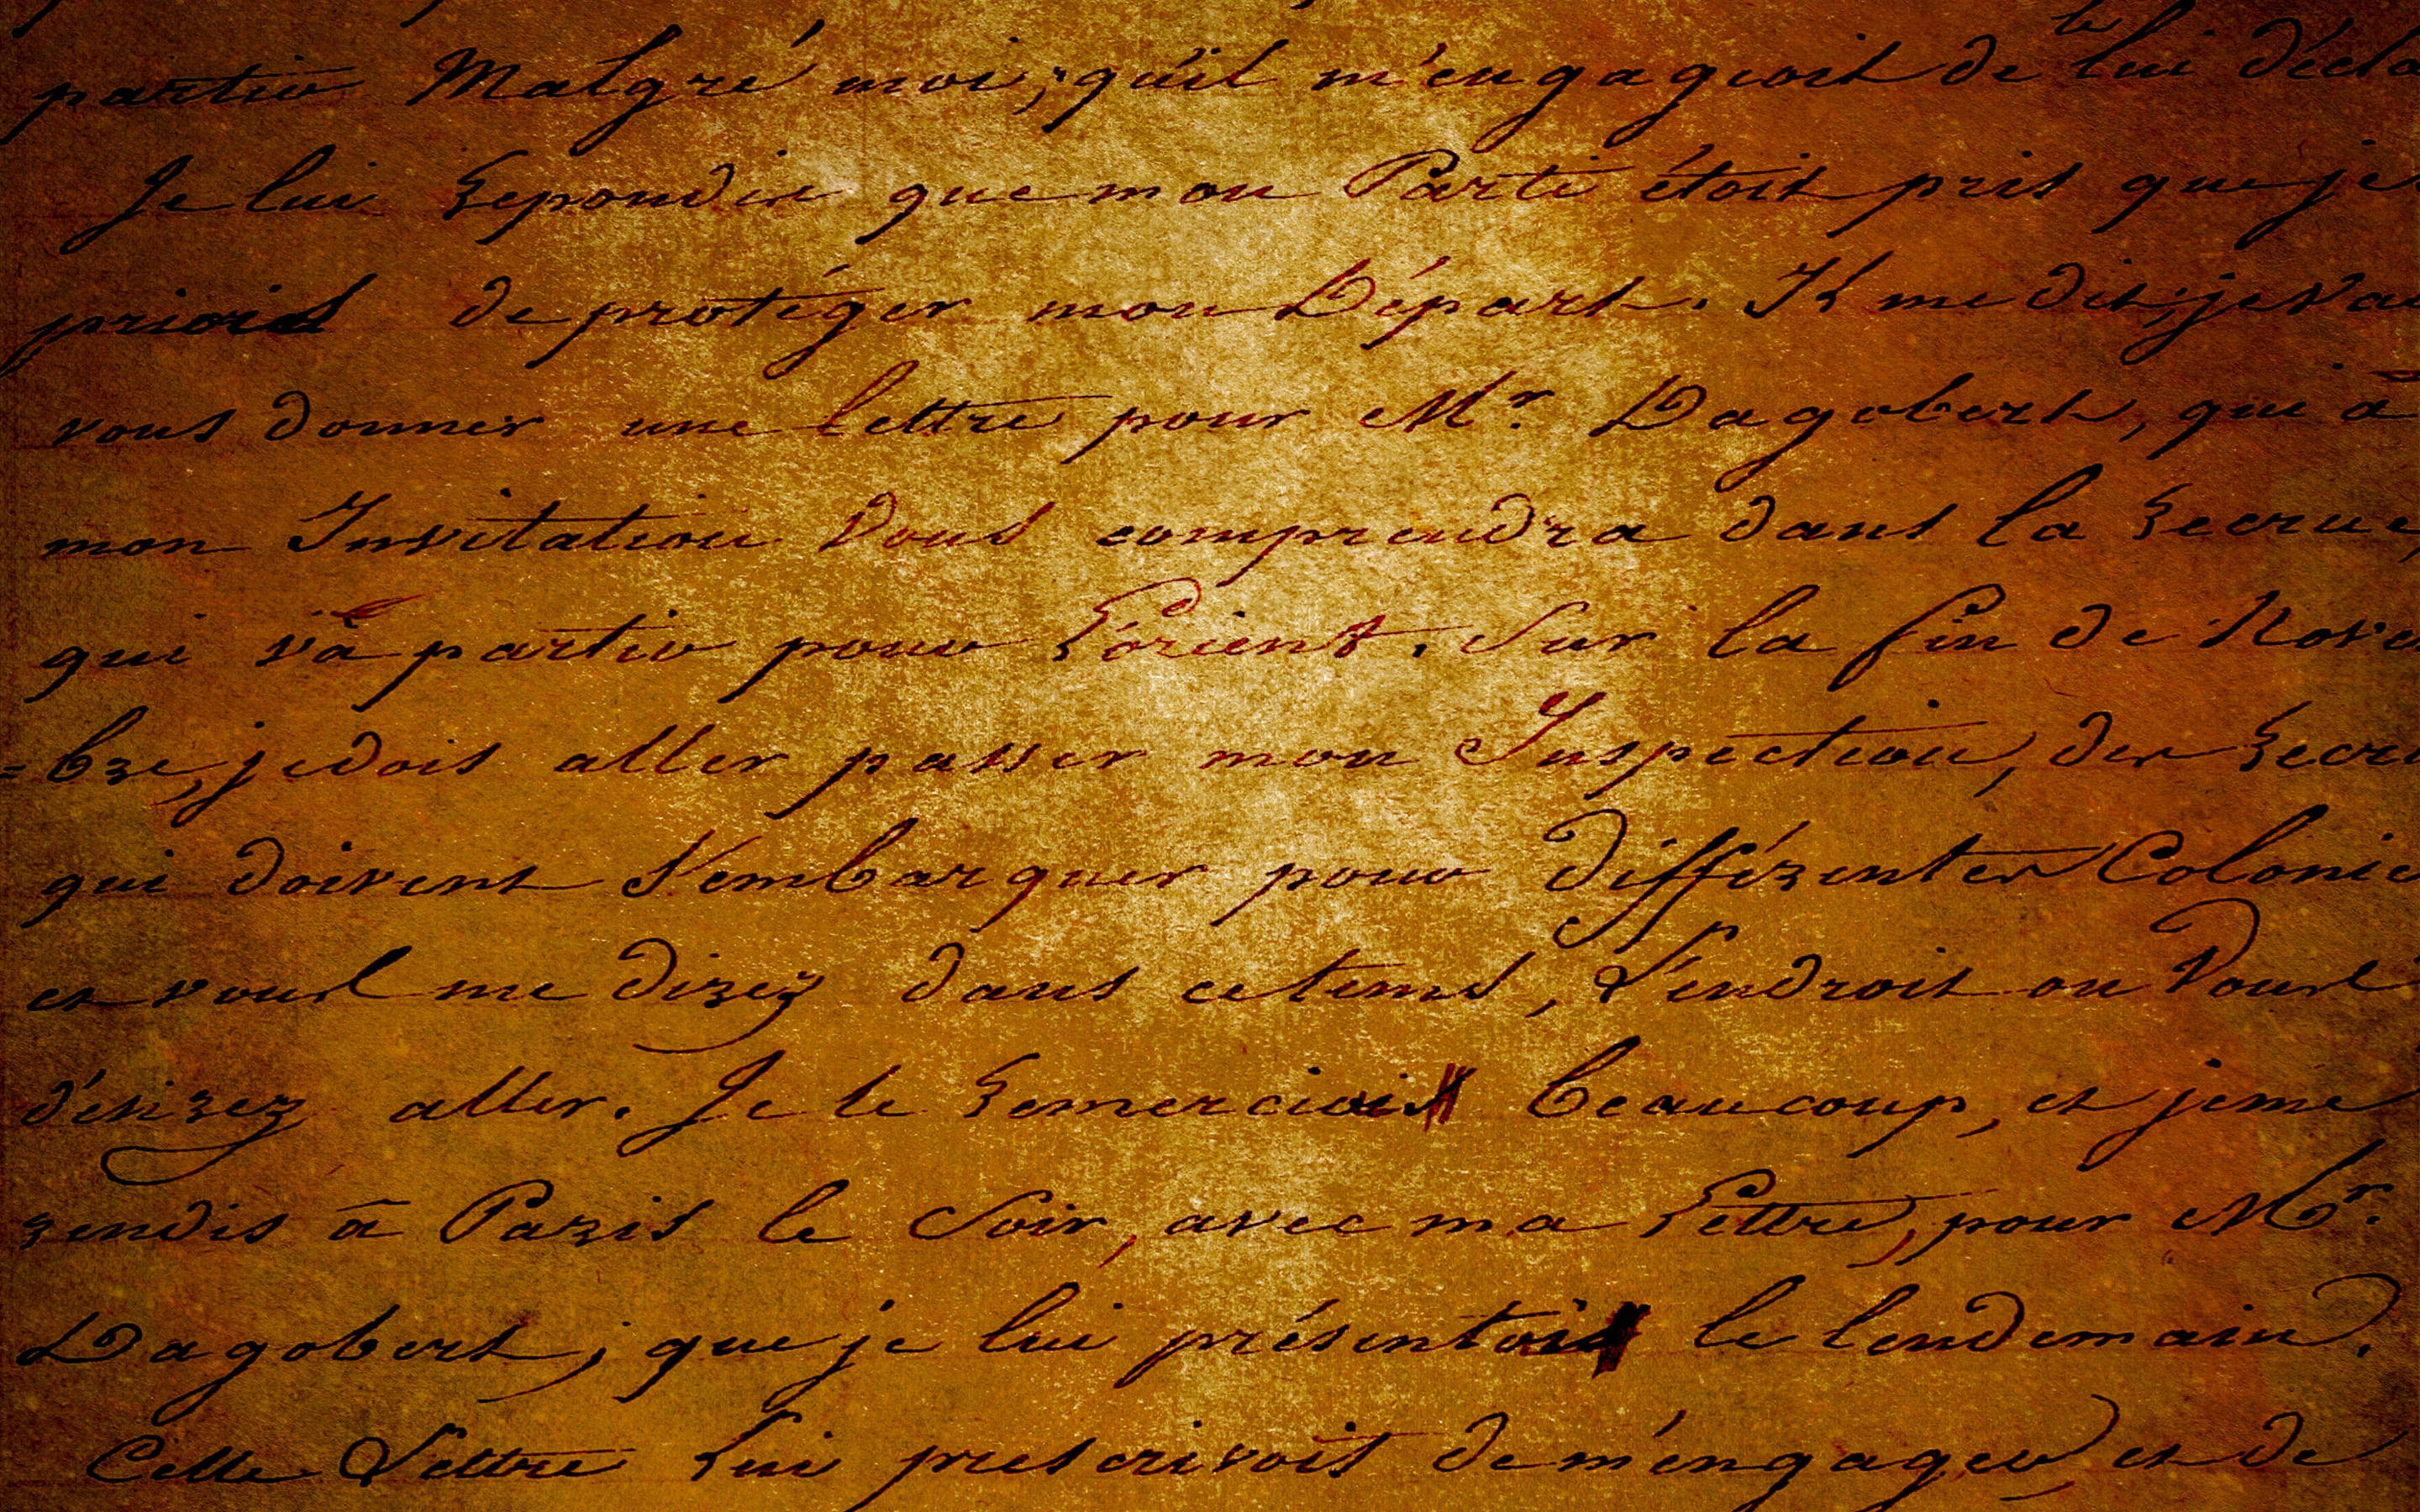 le
partir Malgré moi; qu'il m'engageoit de lui décla
Je lui Repondis que mon Parti étoit pris que je
priois de protéger mon Départ. Il me dit; je vai
vous donner une lettre pour Mr. Dagobert, qui à
mon Invitation Vous comprendra dans la Recrue,
qui và partir pour L'orient. Sur la fin de Nove
=bre, je dois aller passer mon Inspection, des Recru
qui doivent S'embarquer pour différentes Colonie
et vous me direz dans ce tems, L'endroit ou Vous
désirez aller. Je le Remerciai beaucoup, et je me
rendis à Paris le Soir, avec ma Lettre, pour Mr.
Dagobert, que je lui présentai le lendemain.
Cette Lettre Lui prescrivoit de m'engager, et de